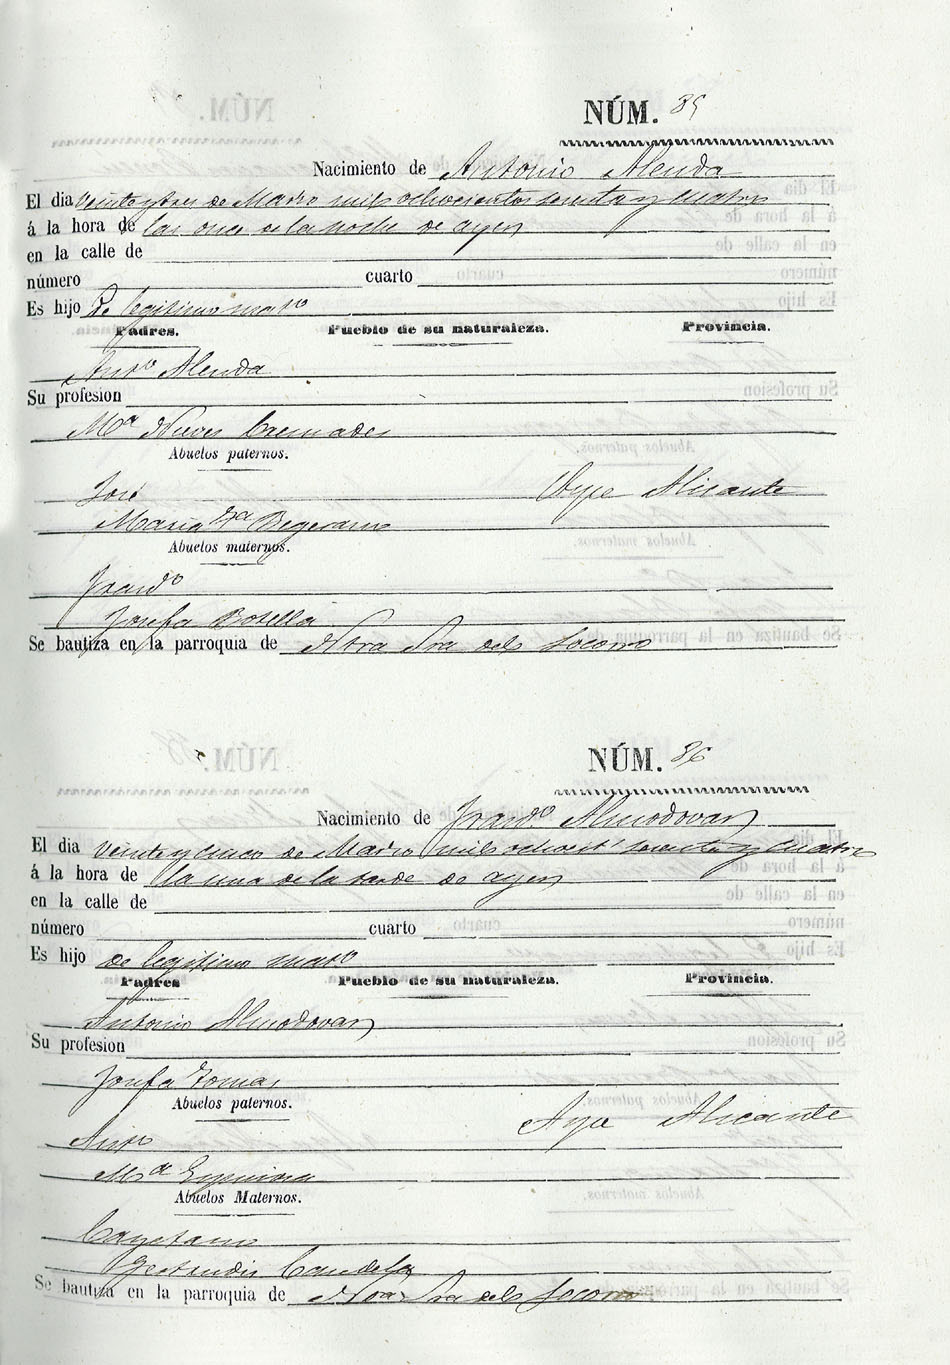 NÚM. 85
Nacimiento de Antonio Alenda
El dia veinte y tres de Marzo mil ochocientos sesenta y cuatro
á la hora de las once de la noche de ayer
en la calle de
número cuarto
Es hijo de legitimo matro
Padres. Pueblo de su naturaleza. Provincia.
Anto Alenda
Su profesion
Ma Nieves Cremades
Abuelos paternos.
José Aspe Alicante
Maria
Abuelos maternos.
Franco
Josefa Botella
Se bautiza en la parroquia de Ntra Sra del Socorro
NÚM. 86
Nacimiento de Franco Almodovar
El dia veinte y cinco de Marzo mil ochocts sesenta y cuatro
á la hora de la una de la tarde de ayer
en la calle de
número cuarto
Es hijo de legitimo matro
Padres Pueblo de su naturaleza. Provincia.
Antonio Almodovar
Su profesion
Josefa Tomas
Abuelos paternos.
Anto Aspe Alicante
Ma
Abuelos Maternos.
Cayetano
Gertrudis Candela
Se bautiza en la parroquia de Ntra Sra del Socorro